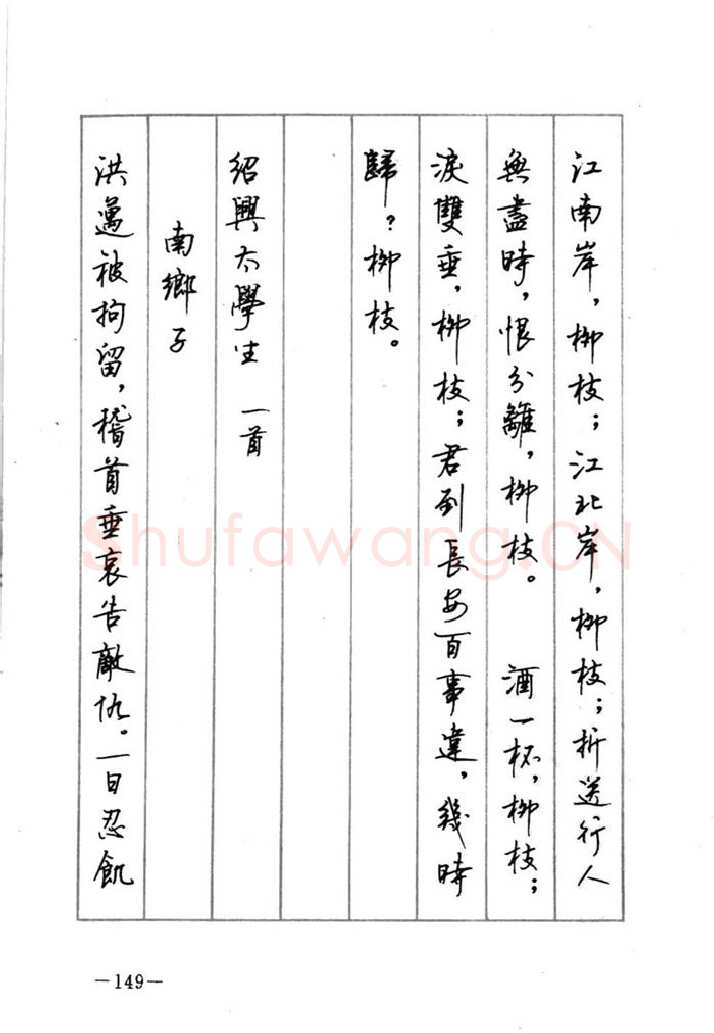 江南岸，柳枝；江北岸，柳枝；折送行人
無盡時，恨分離，柳枝。 酒一杯，柳枝；
淚雙垂，柳枝；君到長安百事違，幾時
歸？柳枝。
紹興太學生 一首
南鄉子
洪邁被拘留，稽首垂哀告敵仇。一日忍飢
—149—
Shufawang.CN